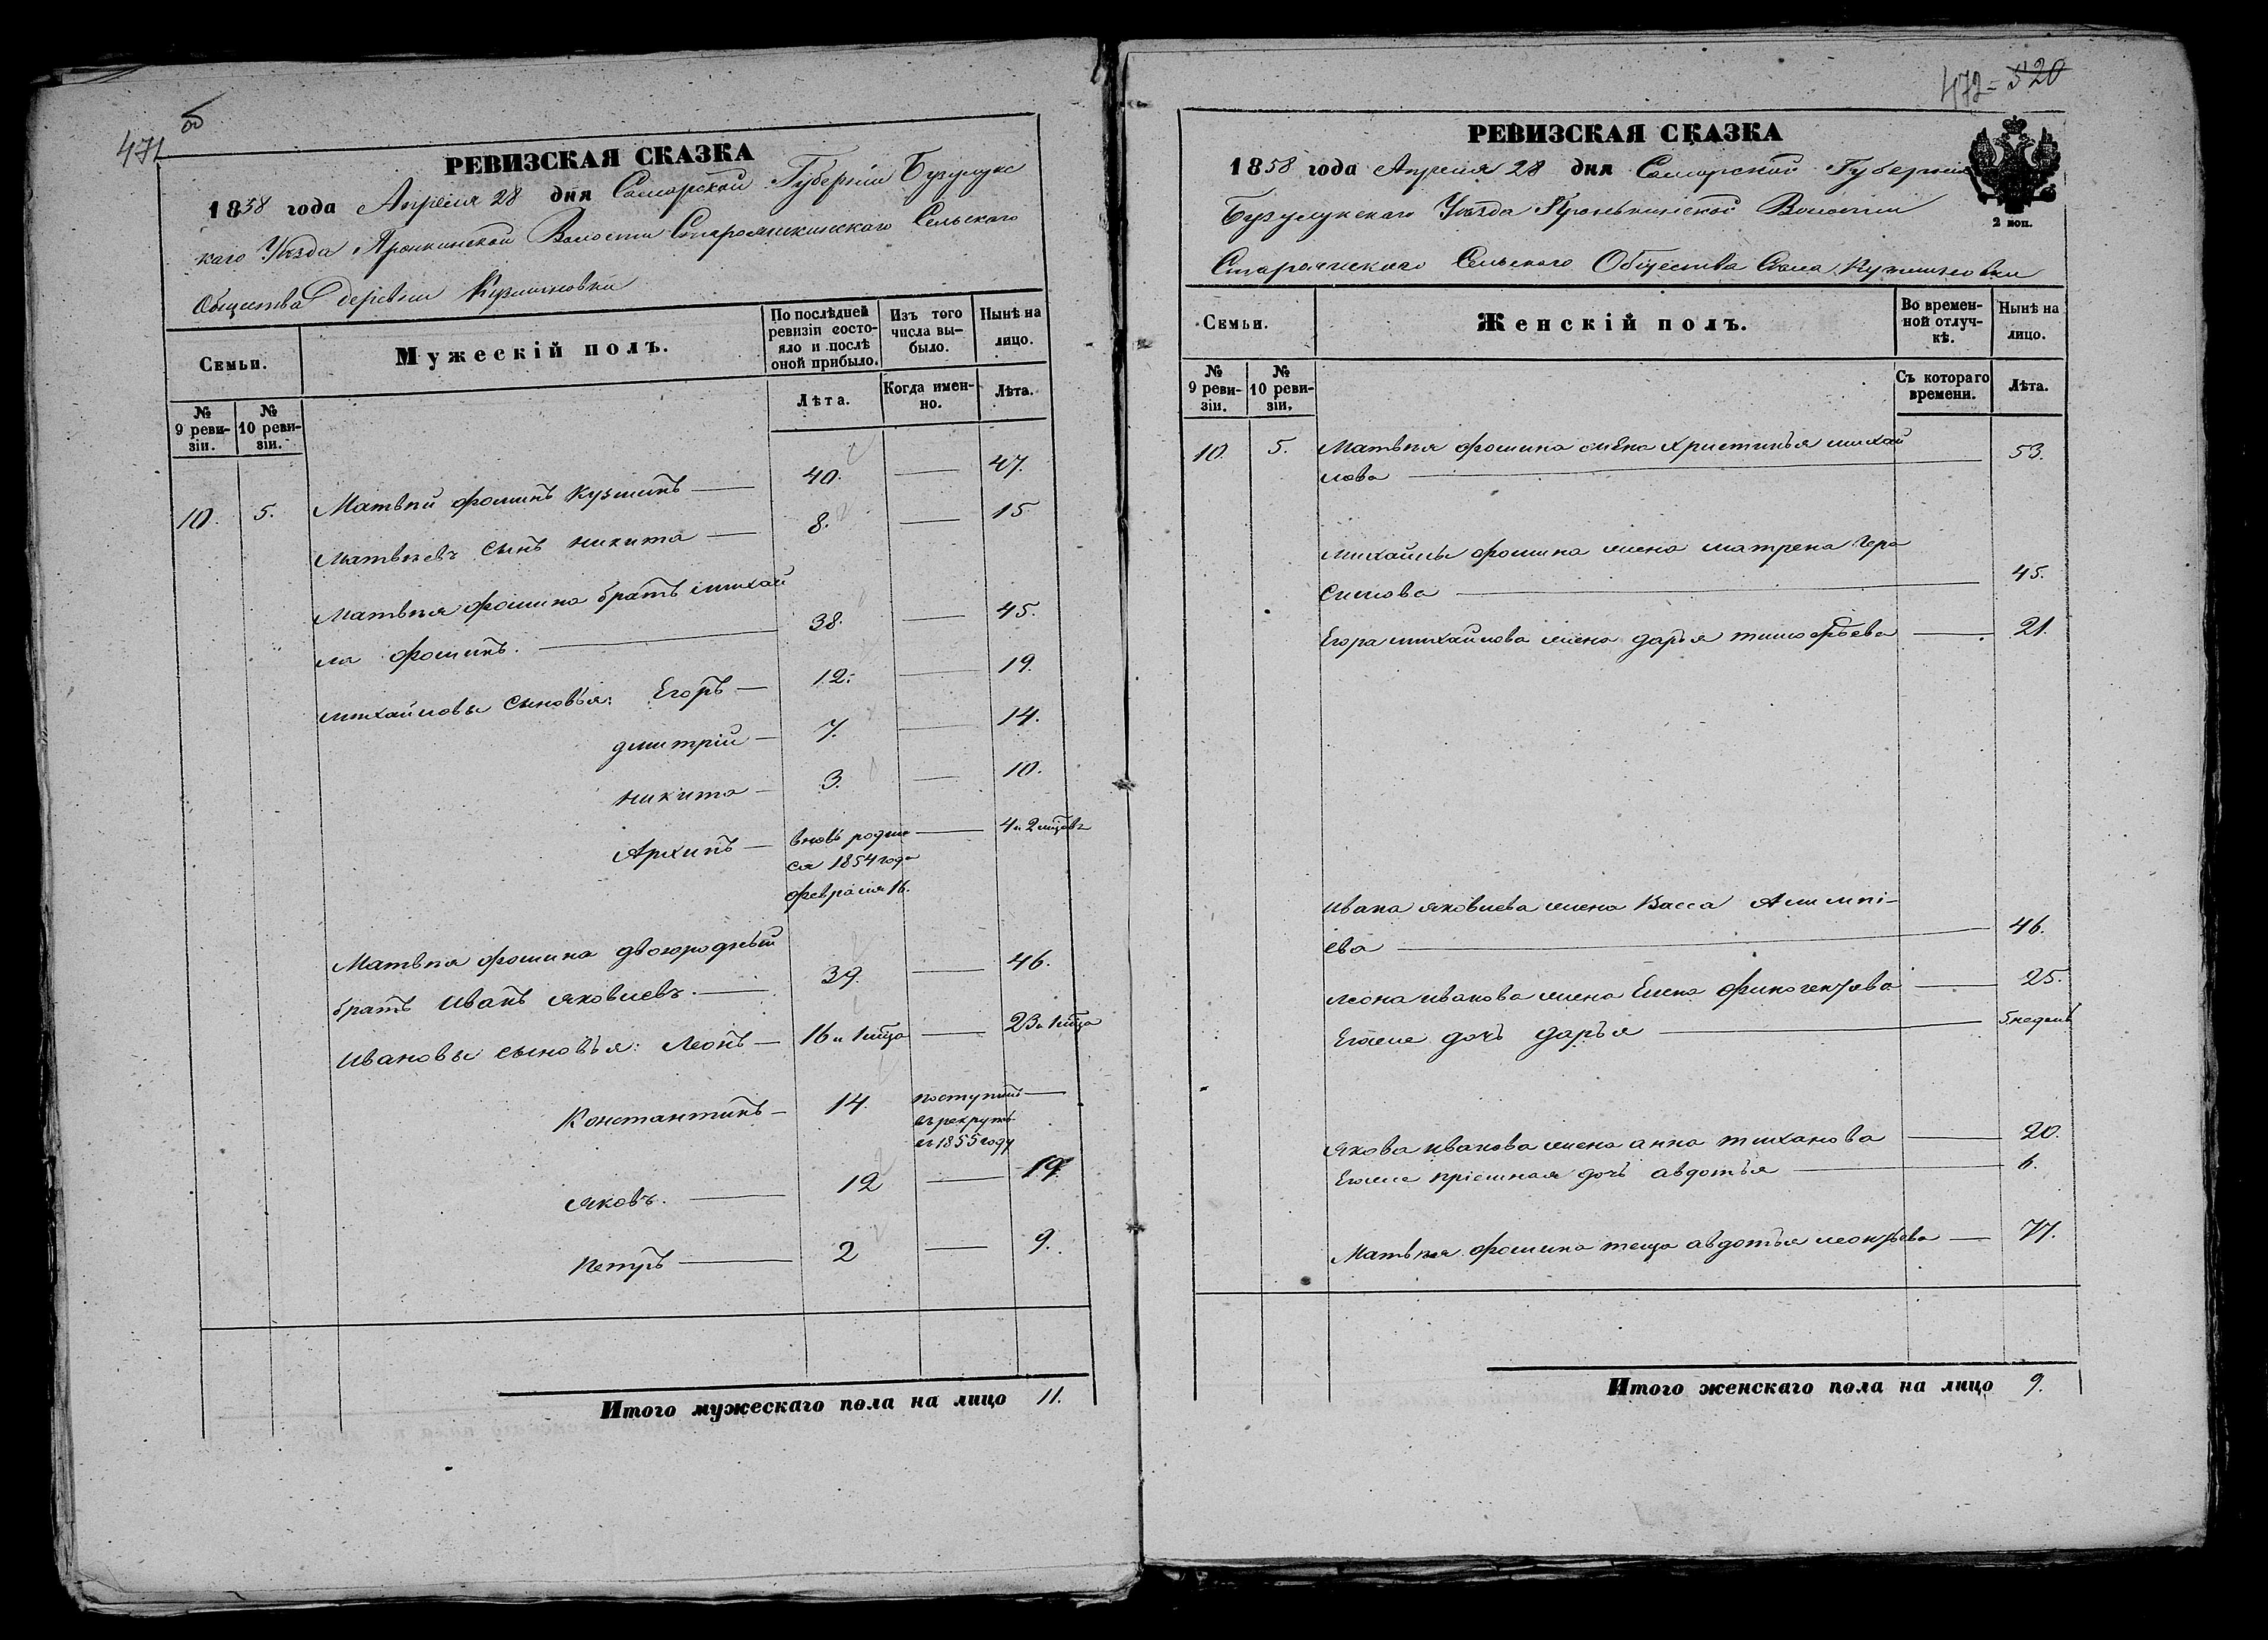 471
об
РЕВИЗСКАЯ СКАЗКА
1858 года Апреля 28 дня Самарской Губерніи Бузулукс
каго Уѣзда Пронкинской Волости Сельскаго
Общества деревни Кузминовки
Семьи.
Мужескій полъ.
По послѣдней ревизіи состояло и послѣ оной прибыло.
Изъ того числа выбыло.
Нынѣ на лицо.
№ 9 ревизіи.
№ 10 ревизіи.
Лѣта.
Когда именно.
Лѣта.
10. 5. Матвѣй Фоминъ Кузминъ — 40. — 47.
Матвѣевъ сынъ Никита — 8. — 15
Матвѣя Фомина братъ Михай
ла Фоминъ. — 38. — 45.
Михайловы сыновья: Егоръ — 12. — 19.
Дмитрій — 7. — 14.
Никита — 3. — 10.
Архипъ — вновь родил — 4 и 2 мѣсва
ся 1854 года
февраля 16.
Матвѣя Фомина двоюродный
братъ Иванъ Яковлевъ. — 39. — 46.
Ивановы сыновья: Леонъ — 16 и 1 мѣца — 23 и 1 мѣца
Константинъ — 14. поступилъ —
въ рекруты
въ 1855 году
Яковъ. — 12 — 19.
Петръ — 2 — 9.
Итого мужескаго пола на лицо 11.
472 = 520
РЕВИЗСКАЯ СКАЗКА
1858 года Апреля 28 дня Самарской Губерніи
Бузулукскаго Уѣзда Пронькинской Волости
Сельского Общества Села
2 коп.
Семьи.
Женскій полъ.
Во временной отлучкѣ.
Нынѣ на лицо.
№ 9 ревизіи.
№ 10 ревизіи.
Съ котораго времени.
Лѣта.
10. 5. Матвѣя Фомина жена Христинья Михай
лова — 53.
Михайлы Фомина жена Матрена Гера
симова — 45.
Егора Михайлова жена Дарья Тимофѣева — 21.
Ивана Яковлева жена Васса Алимпі-
ева — 46.
Леона Иванова жена Елена Финогентьева — 25.
Егоже дочь Дарья — 5 недель
Якова Иванова жена Анна Тиханова — 20.
Егоже пріемная дочь Авдотья — 6.
Матвѣя Фомина теща Авдотья Леонтьева — 77.
Итого женскаго пола на лицо 9.